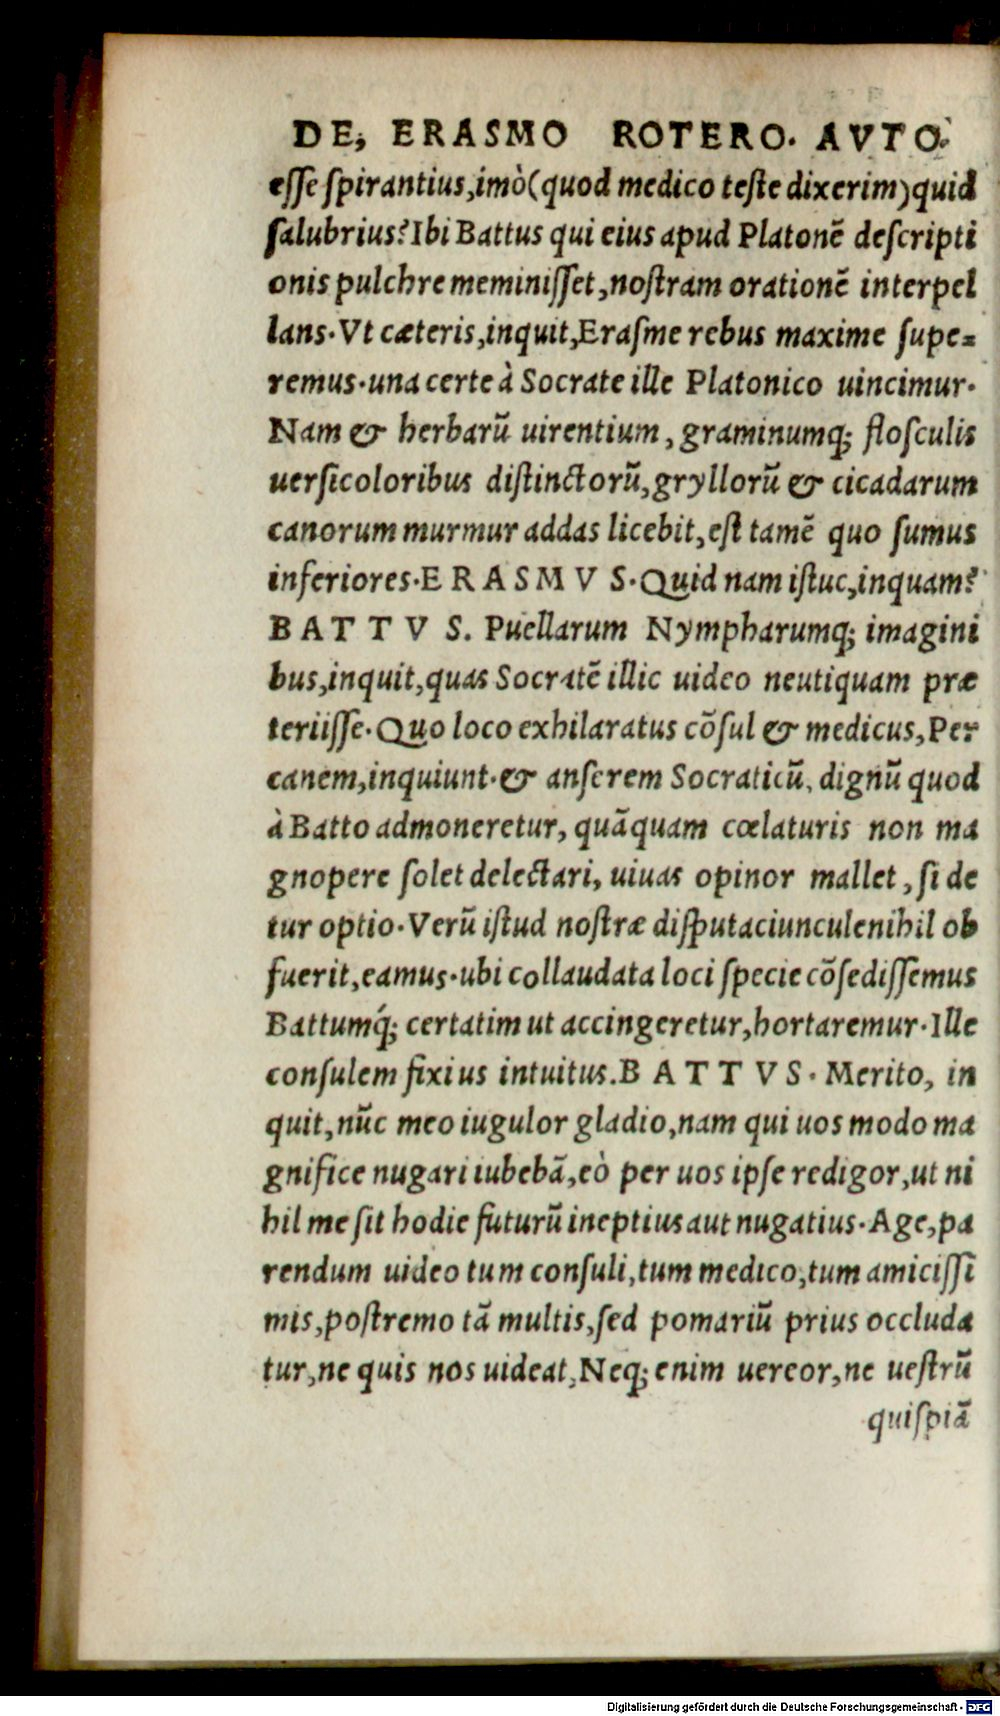 DE, ERASMO ROTERO. AVTO.
eſſe ſpirantius, imò (quod medico teſte dixerim) quid
ſalubrius? Ibi Battus qui eius apud Platonē deſcripti
onis pulchre meminiſſet, noſtram orationē interpel
lans. Vt cæteris, inquit, Eraſme rebus maxime ſupe=
remus. una certe à Socrate ille Platonico uincimur.
Nam & herbarū uirentium, graminumq; floſculis
uerſicoloribus diſtinctorū, gryllorū & cicadarum
canorum murmur addas licebit, eſt tamē quo ſumus
inferiores. ERASMVS. Quid nam iſtuc, inquam?
BATTVS. Puellarum Nympharumq; imagini
bus, inquit, quas Socratē illic uideo neutiquam præ
teriiſſe. Quo loco exhilaratus cōſul & medicus, Per
canem, inquiunt. & anſerem Socraticū, dignū quod
à Batto admoneretur, quāquam cœlaturis non ma
gnopere ſolet delectari, uiuas opinor mallet, ſi de
tur optio. Verū iſtud noſtræ diſputaciunculenihil ob
fuerit, eamus. ubi collaudata loci ſpecie cōſediſſemus
Battumq́; certatim ut accingeretur, hortaremur. Ille
conſulem fixius intuitus. BATTVS. Merito, in
quit, nūc meo iugulor gladio, nam qui uos modo ma
gnifice nugari iubebā, eò per uos ipſe redigor, ut ni
hil me ſit hodie futurū ineptius aut nugatius. Age, pa
rendum uideo tum conſuli, tum medico, tum amiciſſi
mis, poſtremo tā multis, ſed pomariū prius occluda
tur, ne quis nos uideat, Neq; enim uereor, ne ueſtrū
quiſpiā
Digitalisierung gefördert durch die Deutsche Forschungsgemeinschaft - DFG